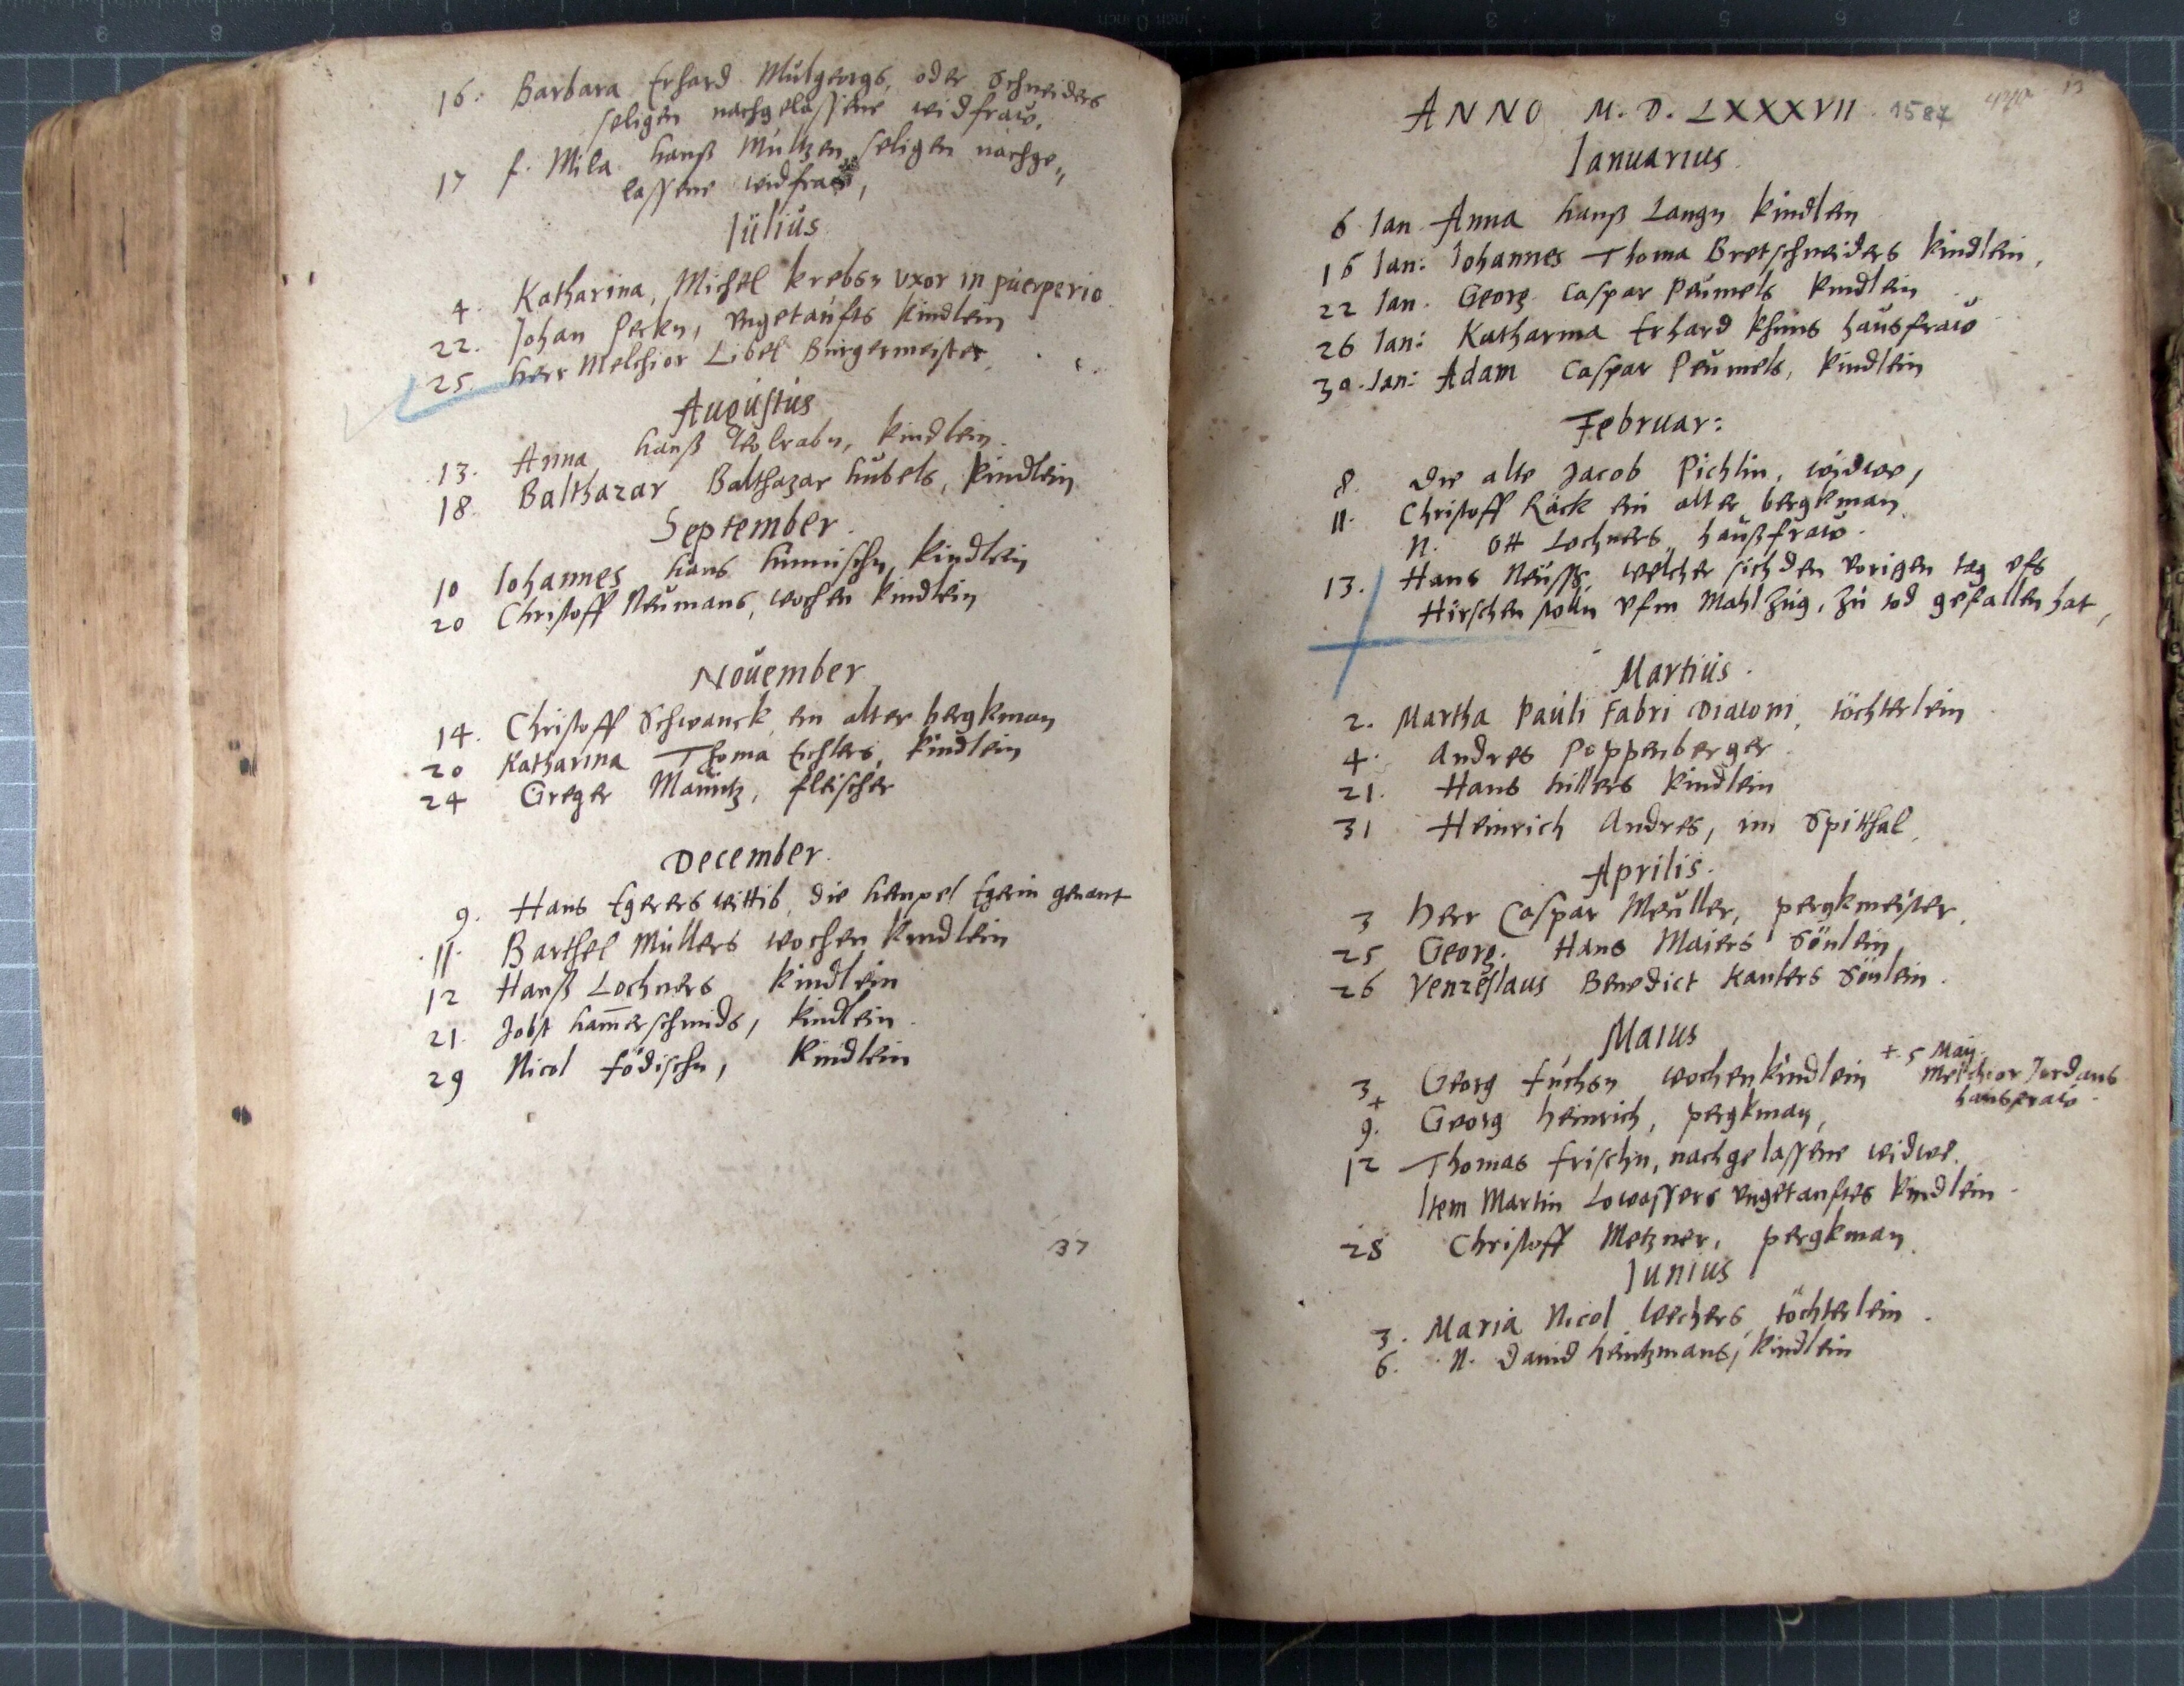 16. Barbara Erhard Mülgeorgs, oder Schneiders
seligen nachgelassene widfraw.
17 f. Mila hanß Mültzen seligen nachge„
lassene widfraw,
Iülius
4. Katharina, Michel Krebsn vxor in püerperio
22. Johan Peckn, vngetaüfts kindlein
25. Herr Melchior Libel Bürgermeister.
Augustus
13. Anna hanß Wolrabn, kindlein.
18 Balthazar Balthazar hübels, kindlein
September.
10 Iohannes hans kindlein
20 Christoff Neümans, wochen kindlein
Nouember
14. Christoff Schwanck ein alter bergkman
20 Katharina Thoma Eichlers, kindlein
24 Greger fleischer
December.
9. Hans Egerers wittib, die hempel Egerin genant
11. Barthel Müllers wochen kindlein
12 Hanß Lochners kindlein
21. Jobst ham̄erschmids, kindlein.
29 Nicol födischn, kindlein
37
ANNO M. D. LXXXVII. 1587
13
Ianuarius
6 Ian Anna hanß Langn kindlein
16 Ian: Iohannes Thoma Bretschneiders kindlein,
22 Ian. Georg Caspar Peümels kindlein
26 Ian: Katharina Erhard Khüns haüsfraw
30. Ian: Adam Caspar Peümels, kindlein
Februar:
8. Die alte Jacob Pichlin, widwe,
11. Christoff Räck ein alter bergkman
N. Ott Lochners haüßfraw.
13. Hans welcher sich den vorigen tag vfs
Hirschen stolln vfm Mahlzüg, zü tod gefallen hat,
Martius.
2. Martha Paüli Fabri Diaconi, töchterlein
4. Andres Poppenberger.
21. Hans hillers kindlein
31 Heinrich Andres, im Spitthal,
Aprilis.
3 Herr Caspar Meüller, pergkmeister.
25 Georg. Hans Maiers Sönlein,
26 Venzeslaus Benedict Kanlers Sönlein.
Maius
3 Georg füchsn wochenkindlein
+ 5 May.
Melchior Jordans
hausfraw.
+
9. Georg Heinrich, pergkman,
12 Thomas frischn, nachgelassene widwe.
Item Martin Lowassers vngetanftes kindlein.
28 Christoff Metzner, pergkman.
Iunius
3. Maria Nicol Wechers, töchterlein.
6. N. David heintzmans, kindlein